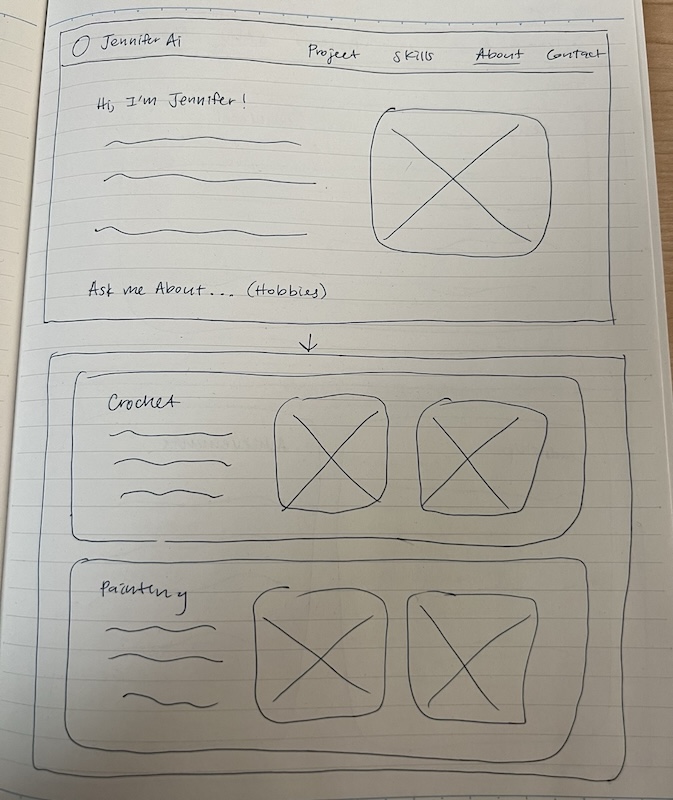 Jennifer Ai Project Skills About Contact
Hi, I'm Jennifer!
Ask me About... (Hobbies)
Crochet
Painting